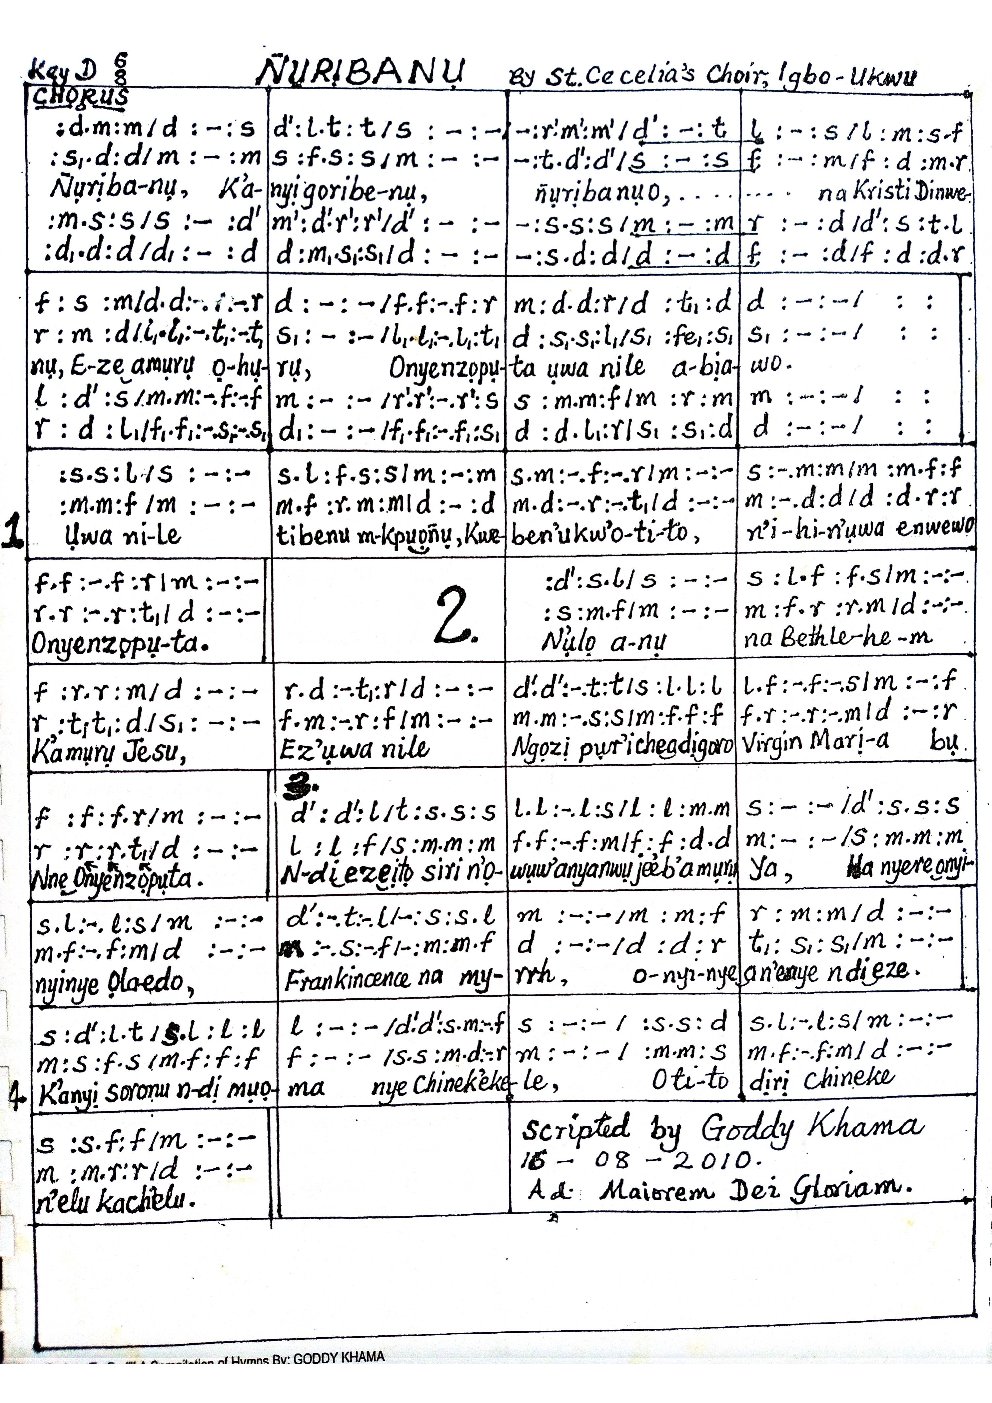 Key D 6/8 ÑỤRỊBANỤ By St. Cecelia's Choir, Igbo-Ukwu
CHORUS
:d.m:m/d :-:s d':l.t:t/s :-:- -:r'.m':m'/d' :-:t l :-:s/l :m:s.f
:s₁.d:d/m :-:m s :f.s:s/m :-:- -:t.d':d'/s :-:s f :-:m/f :d:m.r
Ñụrịba-nụ, K'a- nyịgoribe-nụ, ñụribanụo, . . . . . . . . na Kristi Dinwe-
:m.s:s/s :- :d' m':d'.r':r'/d' :-:- -:s.s:s/m :-:m r :-:d/d':s:t.l
:d₁.d:d/d₁:-:d d:m₁.s₁:s₁/d :-:- -:s.d:d/d :-:d f :-:d/f :d:d.r
f:s:m/d.d:-.r:-.r d :-:-/f.f:-.f:r m:d.d:r/d :t₁:d d :-:-/ : :
r:m:d/l₁.l₁:-.t₁:-.t₁ s₁:-:-/l₁.l₁:-.l₁:t₁ d:s₁.s₁:l₁/s₁:fe₁:s₁ s₁:-:-/ : :
nụ, E-ze amụrụ ọ-hụ- rụ, Onyenzọpụ- ta ụwa nile a-bịa- wo.
l:d':s/m.m:-.f:-.f m:-:-/r'.r':-.r':s s:m.m:f/m:r:m m :-:-/ : :
r:d:l₁/f₁.f₁:-.s₁:-.s₁ d₁:-:-/f₁.f₁:-.f₁:s₁ d:d.l₁:r/s₁:s₁:d d :-:-/ : :
:s.s:l/s :-:- s.l:f.s:s/m:-:m s.m:-.f:-.r/m:-:- s:-.m:m/m:m.f:f
:m.m:f/m :-:- m.f:r.m:m/d:-:d m.d:-.r:-.t₁/d:-:- m:-.d:d/d:d.r:r
1 Ụwa ni-le tibenu m-kpụọñụ, Kwe- ben'ukw'o-ti-to, n'i-hi-n'ụwa enwewo
f.f:-.f:r/m:-:- 2. :d':s.l/s :-:- s:l.f:f.s/m:-:-
r.r:-.r:t₁/d:-:- :s:m.f/m :-:- m:f.r:r.m/d:-:-
Onyenzọpụ-ta. N'ụlọ a-nụ na Bethle-he-m
f:r.r:m/d :-:- r.d:-.t₁:r/d:-:- d'.d':-.t:t/s:l.l:l l.f:-.f:-.s/m:-:f
r:t₁.t₁:d/s₁:-:- f.m:-.r:f/m:-:- m.m:-.s:s/m:f.f:f f.r:-.r:-.m/d:-:r
K'amụrụ Jesu, Ez'ụwa nile Ngọzị pụr'ichegdịgoro Virgin Marị-a bụ
f:f:f.r/m :-:- 3. d':d':l/t:s.s:s l.l:-.l:s/l:l:m.m s:-:-/d':s.s:s
r:r:r.t₁/d :-:- l:l:f/s:m.m:m f.f:-.f:m/f:f:d.d m:-:-/s:m.m:m
Nne Onyenzọpụta. N-dị ezeịtọ siri n'ọ- wụw'anyanwụ jeeb'amụrụ Ya, Ha nyere onyi-
s.l:-.l:s/m :-:- d':-.t:-.l/-:s:s.l m:-:-/m:m:f r:m:m/d:-:-
m.f:-.f:m/d :-:- m:-.s:-.f/-:m:m.f d:-:-/d:d:r t₁:s₁:s₁/m:-:-
nyinye Ọla-edo, Frankincence na my- rrh, o-nyi-nye an'enye ndịeze.
s:d':l.t/s.l:l:l l:-:-/d'.d':s.m:-.f s:-:-/:s.s:d s.l:-.l:s/m:-:-
m:s:f.s/m.f:f:f f:-:-/s.s:m.d:-.r m:-:-/:m.m:s m.f:-.f:m/d:-:-
4. K'anyị soronu n-dị mụọ- ma nye Chinek'eke- le, Oti-to dịrị Chineke
s:s.f:f/m:-:- Scripted by Goddy Khama
m:m.r:r/d:-:- 16 - 08 - 2010.
n'elu kachelu. Ad: Maiorem Dei Gloriam.
Compilation of Hymns By: GODDY KHAMA